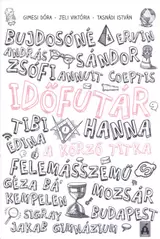 GIMESI DÓRA · ZELI VIKTÓRIA · TASNÁDI ISTVÁN
BUJDOSÓNÉ ERVIN
ANDRÁS SÁNDOR
ZSÓFI ANNUIT COEPTIS
IDŐFUTÁR
TIBI HANNA
EDINA A KŐRZŐ TITKA
FELEMÁSSZEMŰ
GÉZA BÁ' MOZSÁR
KEMPELEN
SIGRAY BUDAPEST
JAKAB GIMNÁZIUM